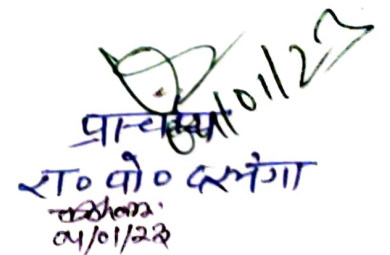 04/01/23
प्राचार्य
रा० पो० दरभंगा
04/01/23